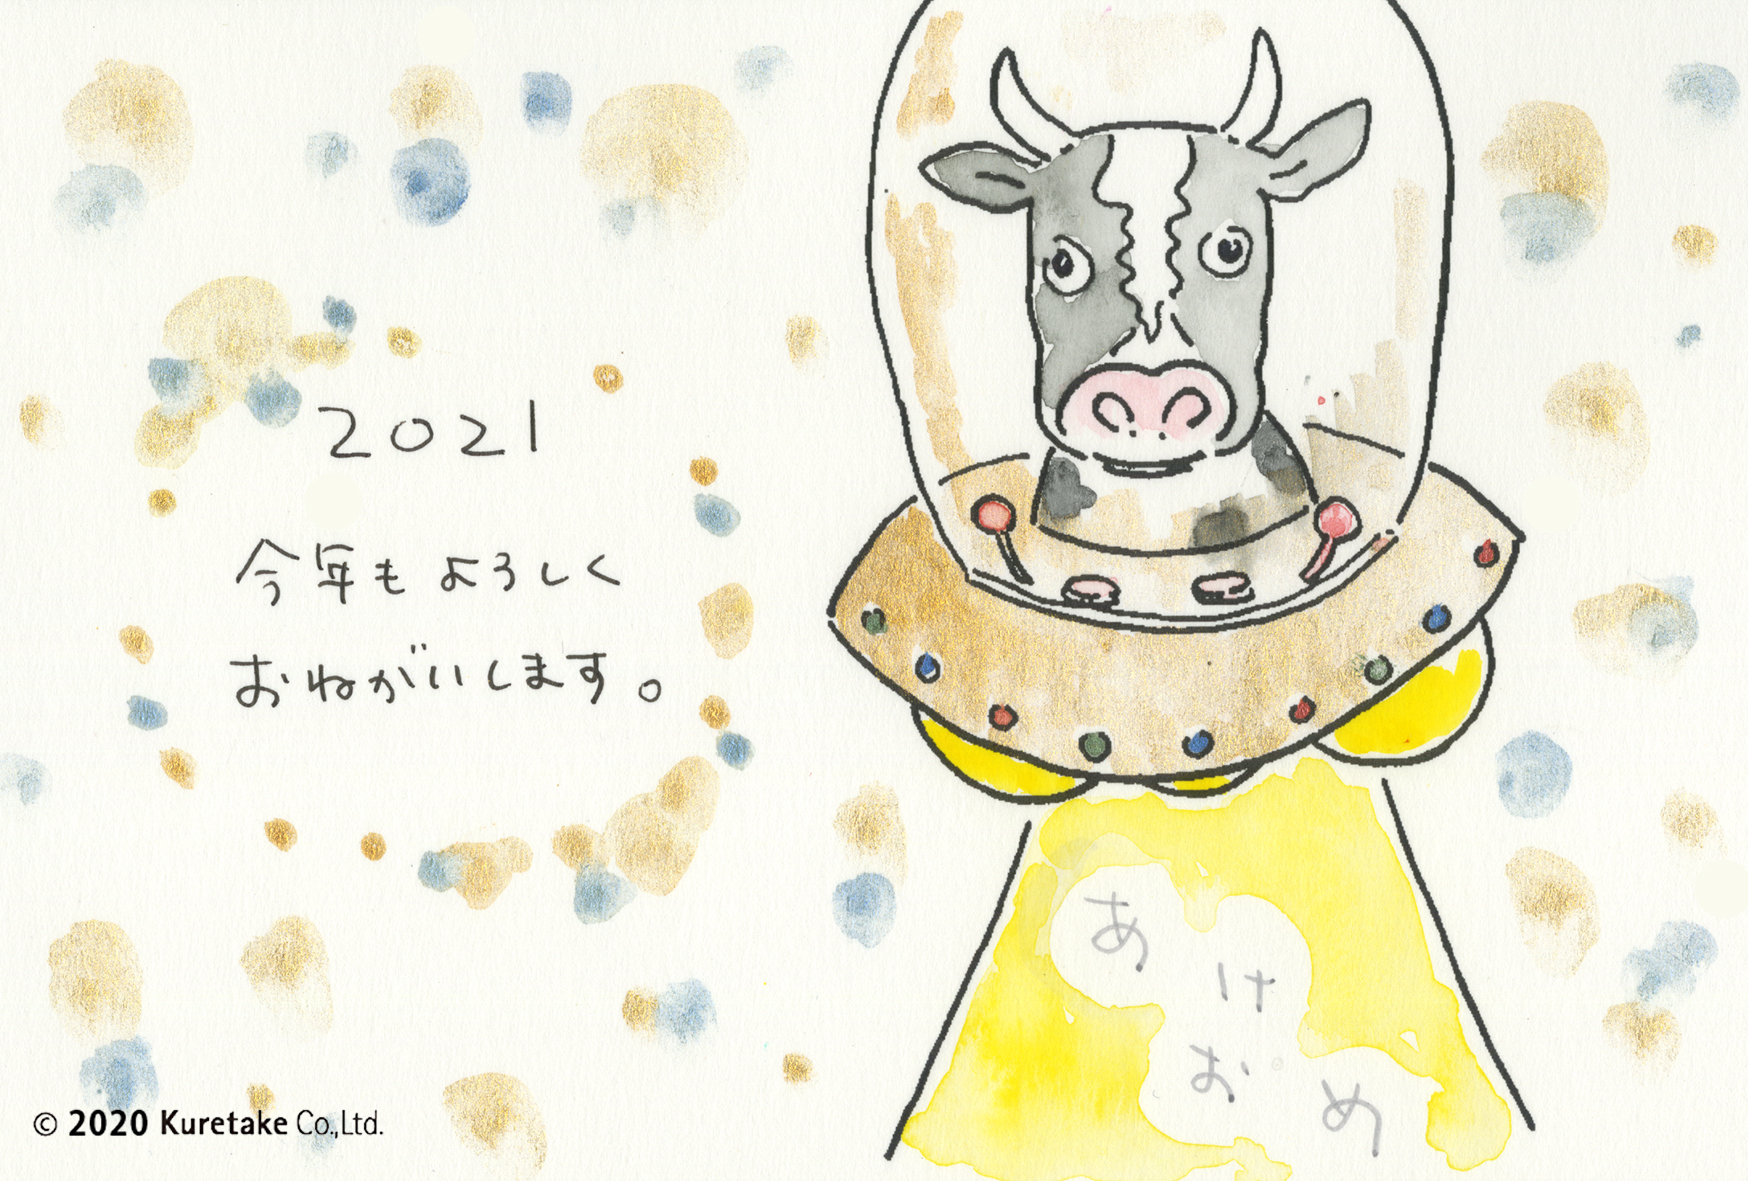 2021
今年もよろしく
おねがいします。
あけ
おめ
© 2020 Kuretake Co.,Ltd.